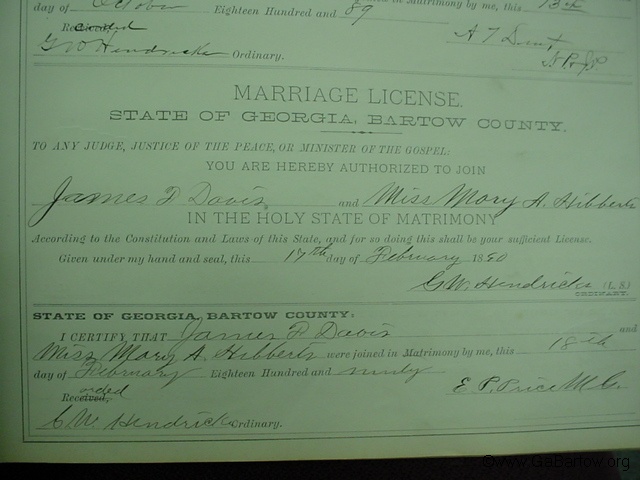 day of October Eighteen Hundred and 89 in Matrimony by me, this 13th
Recorded A T
G W Hendricks Ordinary. N.P. & J.P.
MARRIAGE LICENSE.
STATE OF GEORGIA, BARTOW COUNTY.
TO ANY JUDGE, JUSTICE OF THE PEACE, OR MINISTER OF THE GOSPEL:
YOU ARE HEREBY AUTHORIZED TO JOIN
James D Davis and Miss Mary A. Hibberts
IN THE HOLY STATE OF MATRIMONY
According to the Constitution and Laws of this State, and for so doing this shall be your sufficient License.
Given under my hand and seal, this 17th day of February 1890
G W. Hendricks (L. S.)
ORDINARY.
STATE OF GEORGIA, BARTOW COUNTY:
I CERTIFY, THAT James D Davis and
Miss Mary A. Hibberts were joined in Matrimony by me, this 18th
day of February Eighteen Hundred and ninety
Recorded E. P. Price M.G.
G W. Hendricks Ordinary.
©www.GaBartow.org